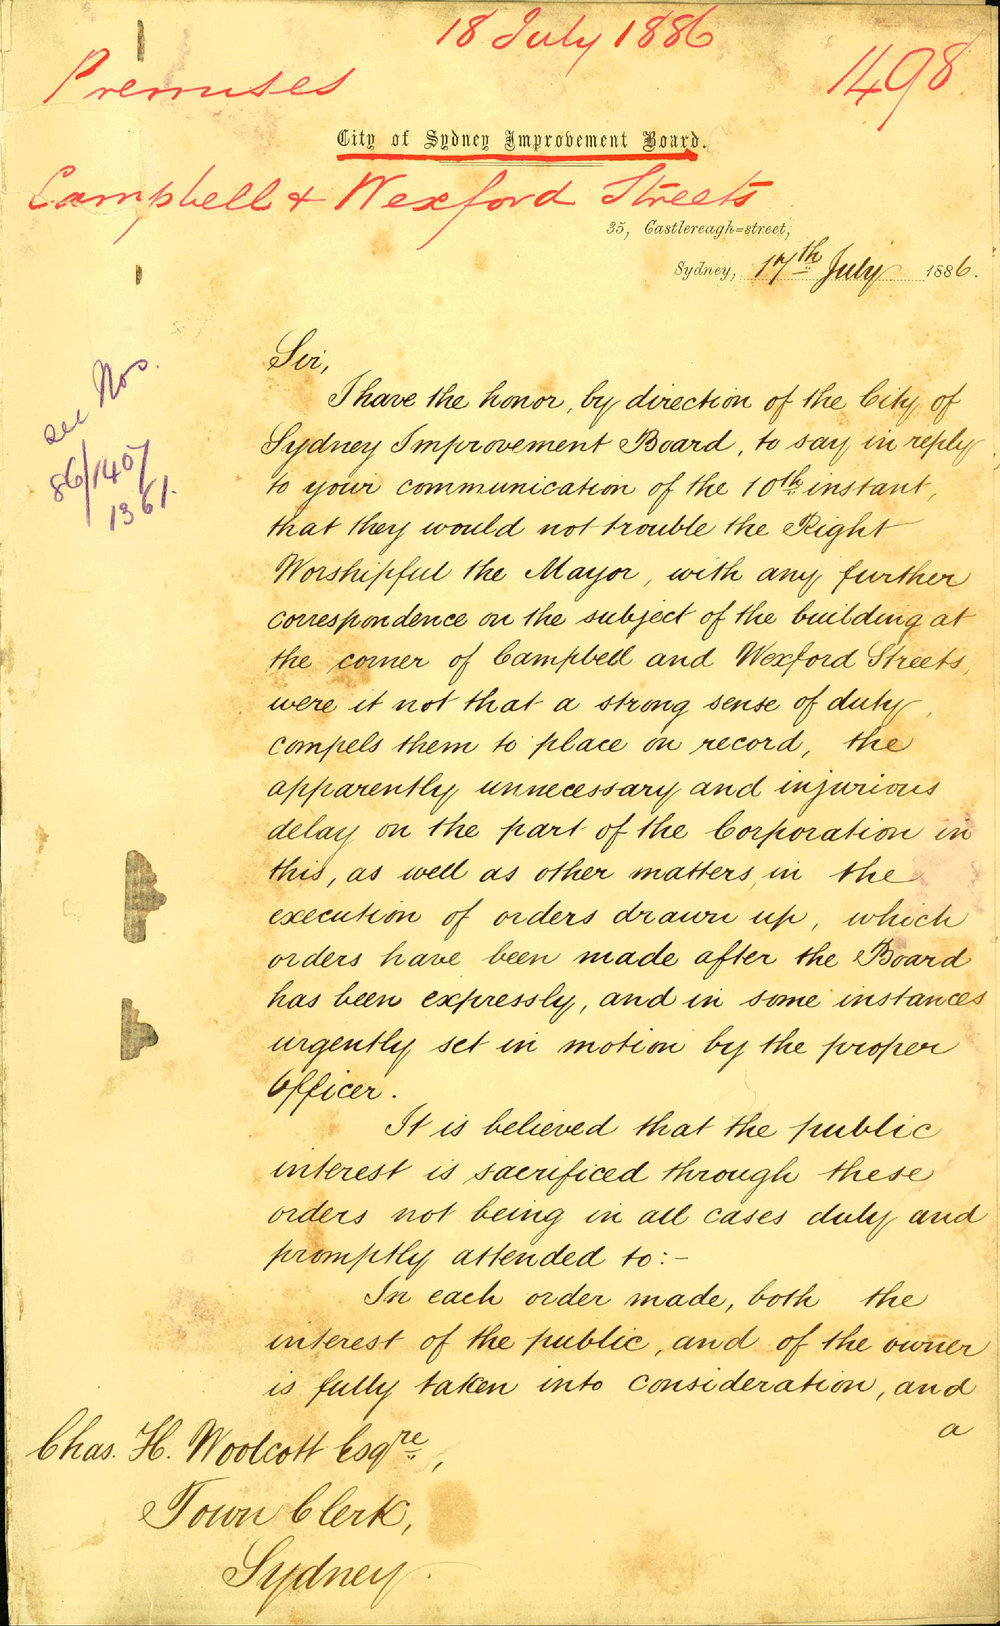 18 July 1886
Premises
1498
City of Sydney Improvement Board.
Campbell & Wexford Streets
35, Castlereagh=street,
Sydney, 17th July 1886.
see Nos.
86/1407
1361.
Sir,
I have the honor, by direction of the City of
Sydney Improvement Board, to say in reply
to your communication of the 10th instant,
that they would not trouble the Right
Worshipful the Mayor, with any further
correspondence on the subject of the building at
the corner of Campbell and Wexford Streets,
were it not that a strong sense of duty,
compels them to place on record, the
apparently unnecessary and injurious
delay on the part of the Corporation in
this, as well as other matters, in the
execution of orders drawn up, which
orders have been made after the Board
has been expressly, and in some instances
urgently set in motion by the proper
Officer.
It is believed that the public
interest is sacrificed through these
orders not being in all cases duly and
promptly attended to:-
In each order made, both the
interest of the public, and of the owner
is fully taken into consideration, and
a
Chas. H. Woolcott Esqre,
Town Clerk,
Sydney.